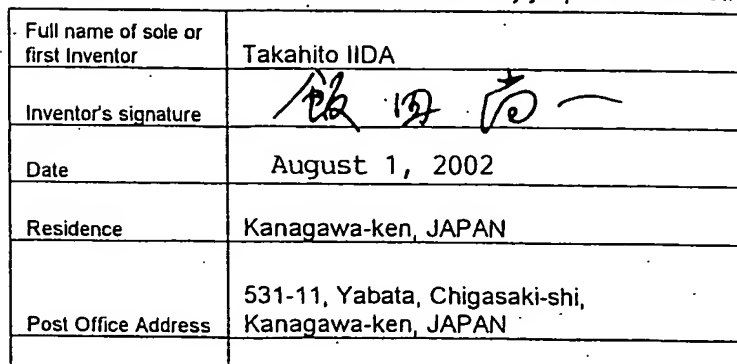 Full name of sole or
first Inventor
Takahito IIDA
Inventor's signature
飯田尚一
Date
August 1, 2002
Residence
Kanagawa-ken, JAPAN
Post Office Address
531-11, Yabata, Chigasaki-shi,
Kanagawa-ken, JAPAN